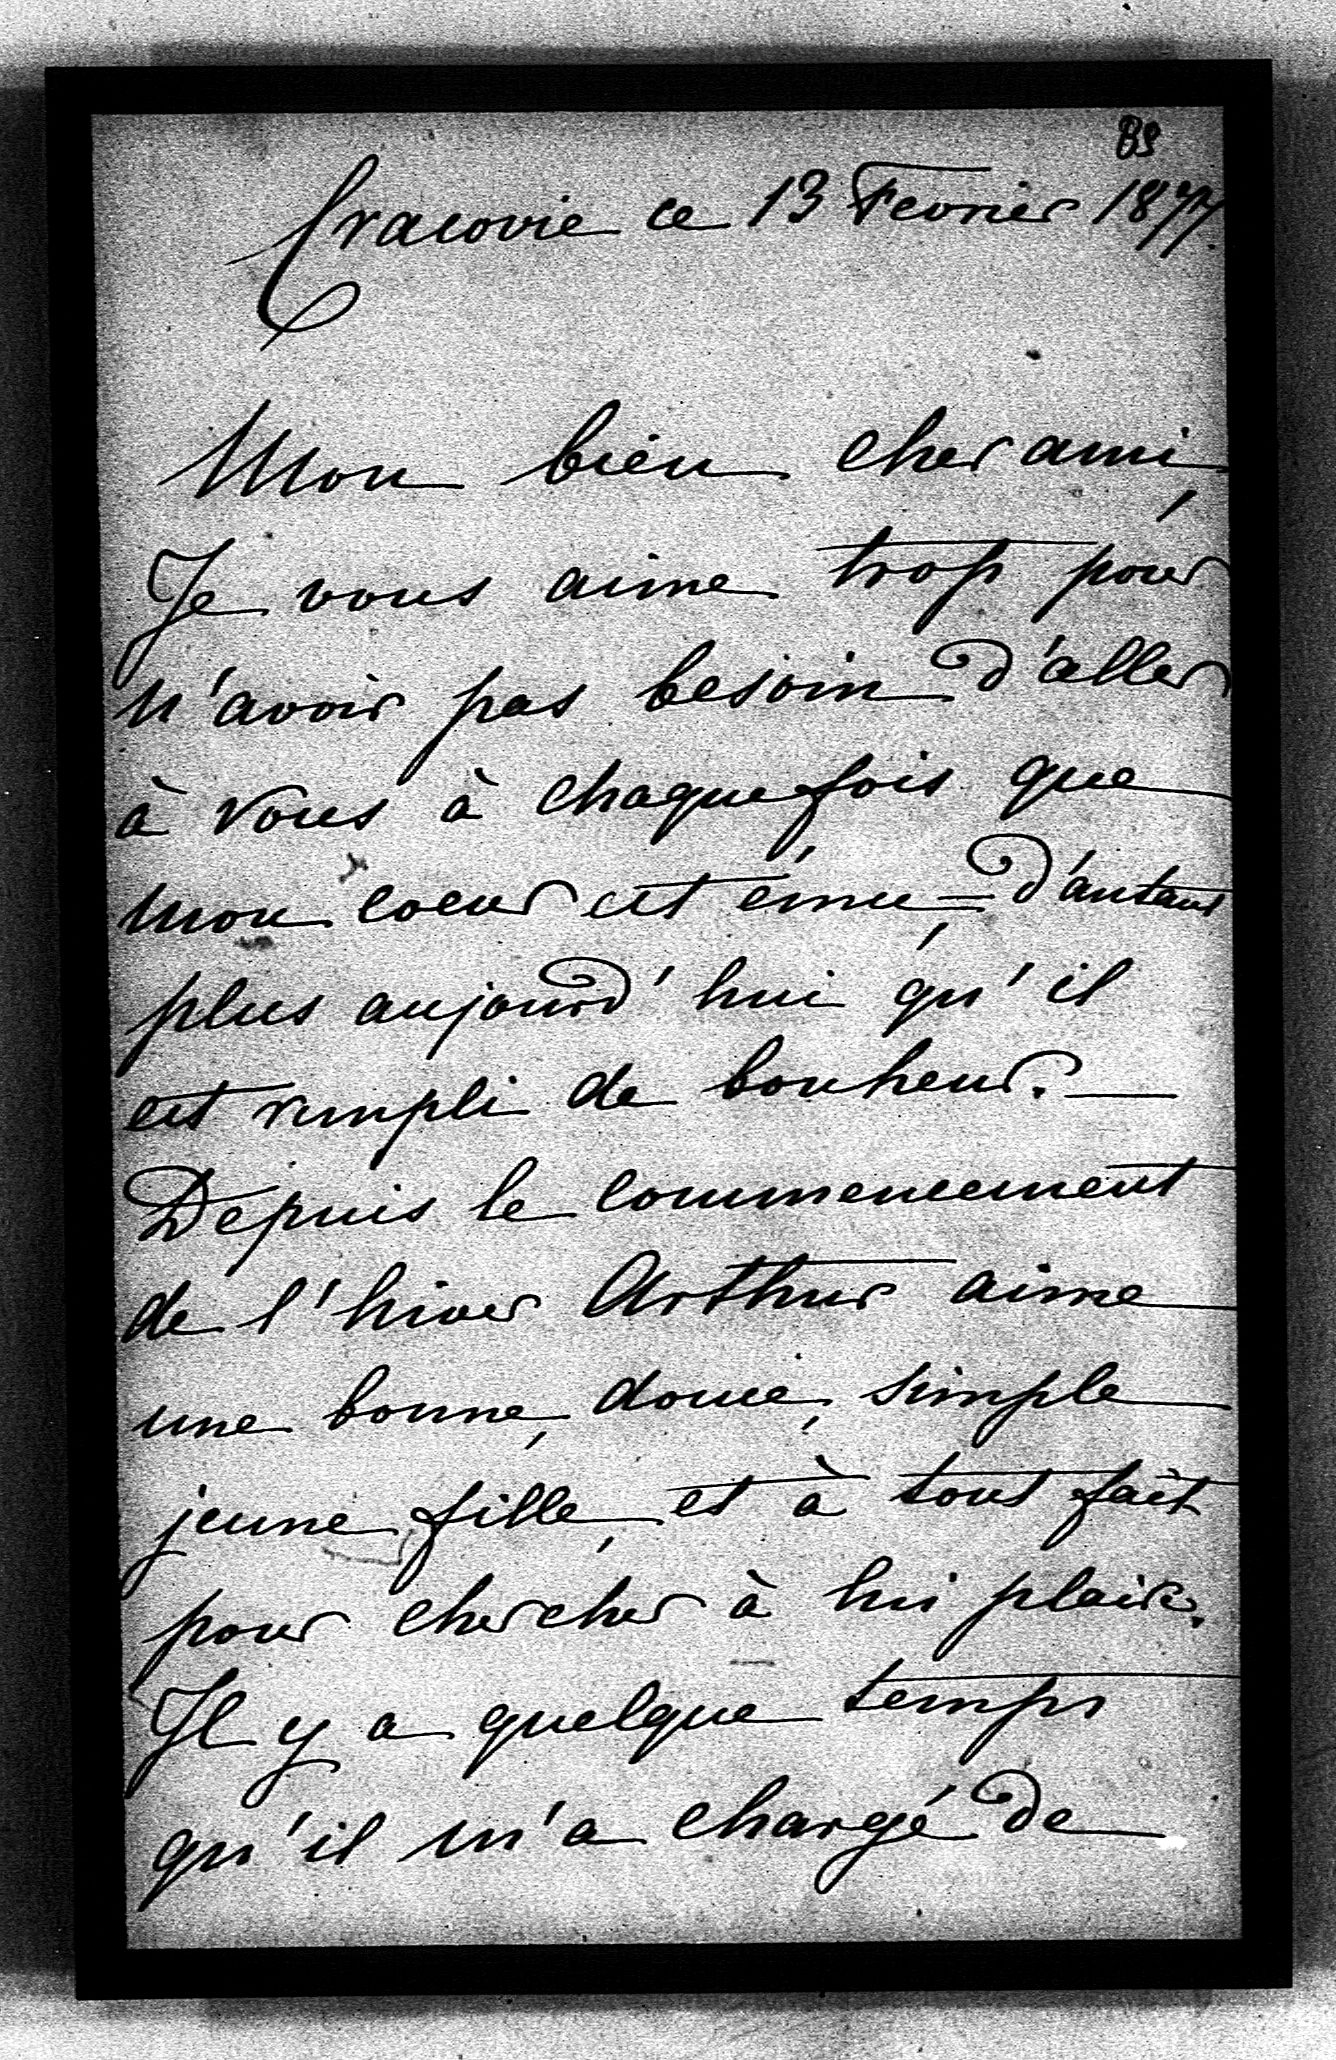 89
Cracovie ce 13 Fevrier 1877.
Mon bien cher ami,
Je vous aime trop pour
n'avoir pas besoin d'aller
à vous à chaque fois que
mon coeur est ému, = d'autant
plus aujourd'hui qu'il
est rempli de bonheur. —
Depuis le commencement
de l'hiver Arthur aime
une bonne, douce, simple
jeune fille, et à tout fait
pour chercher à lui plaire.
Il y a quelque temps
qu'il m'a chargé de